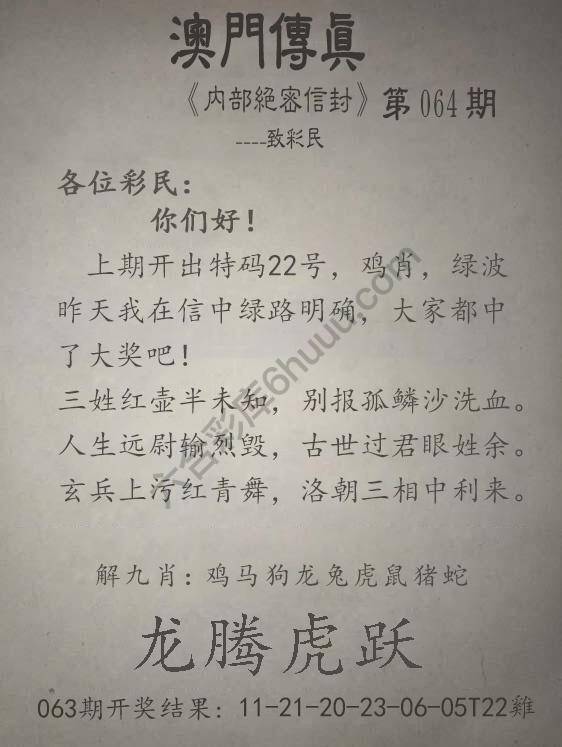 澳門傳眞
《内部絕密信封》第064期
----致彩民
各位彩民：
你们好！
上期开出特码22号，鸡肖，绿波
昨天我在信中绿路明确，大家都中
了大奖吧！
三姓红壶半未知，别报孤鳞沙洗血。
人生远尉输烈毁，古世过君眼姓余。
玄兵上污红青舞，洛朝三相中利来。
六合彩库6huuu.com
解九肖：鸡马狗龙兔虎鼠猪蛇
龙腾虎跃
063期开奖结果：11-21-20-23-06-05T22雞